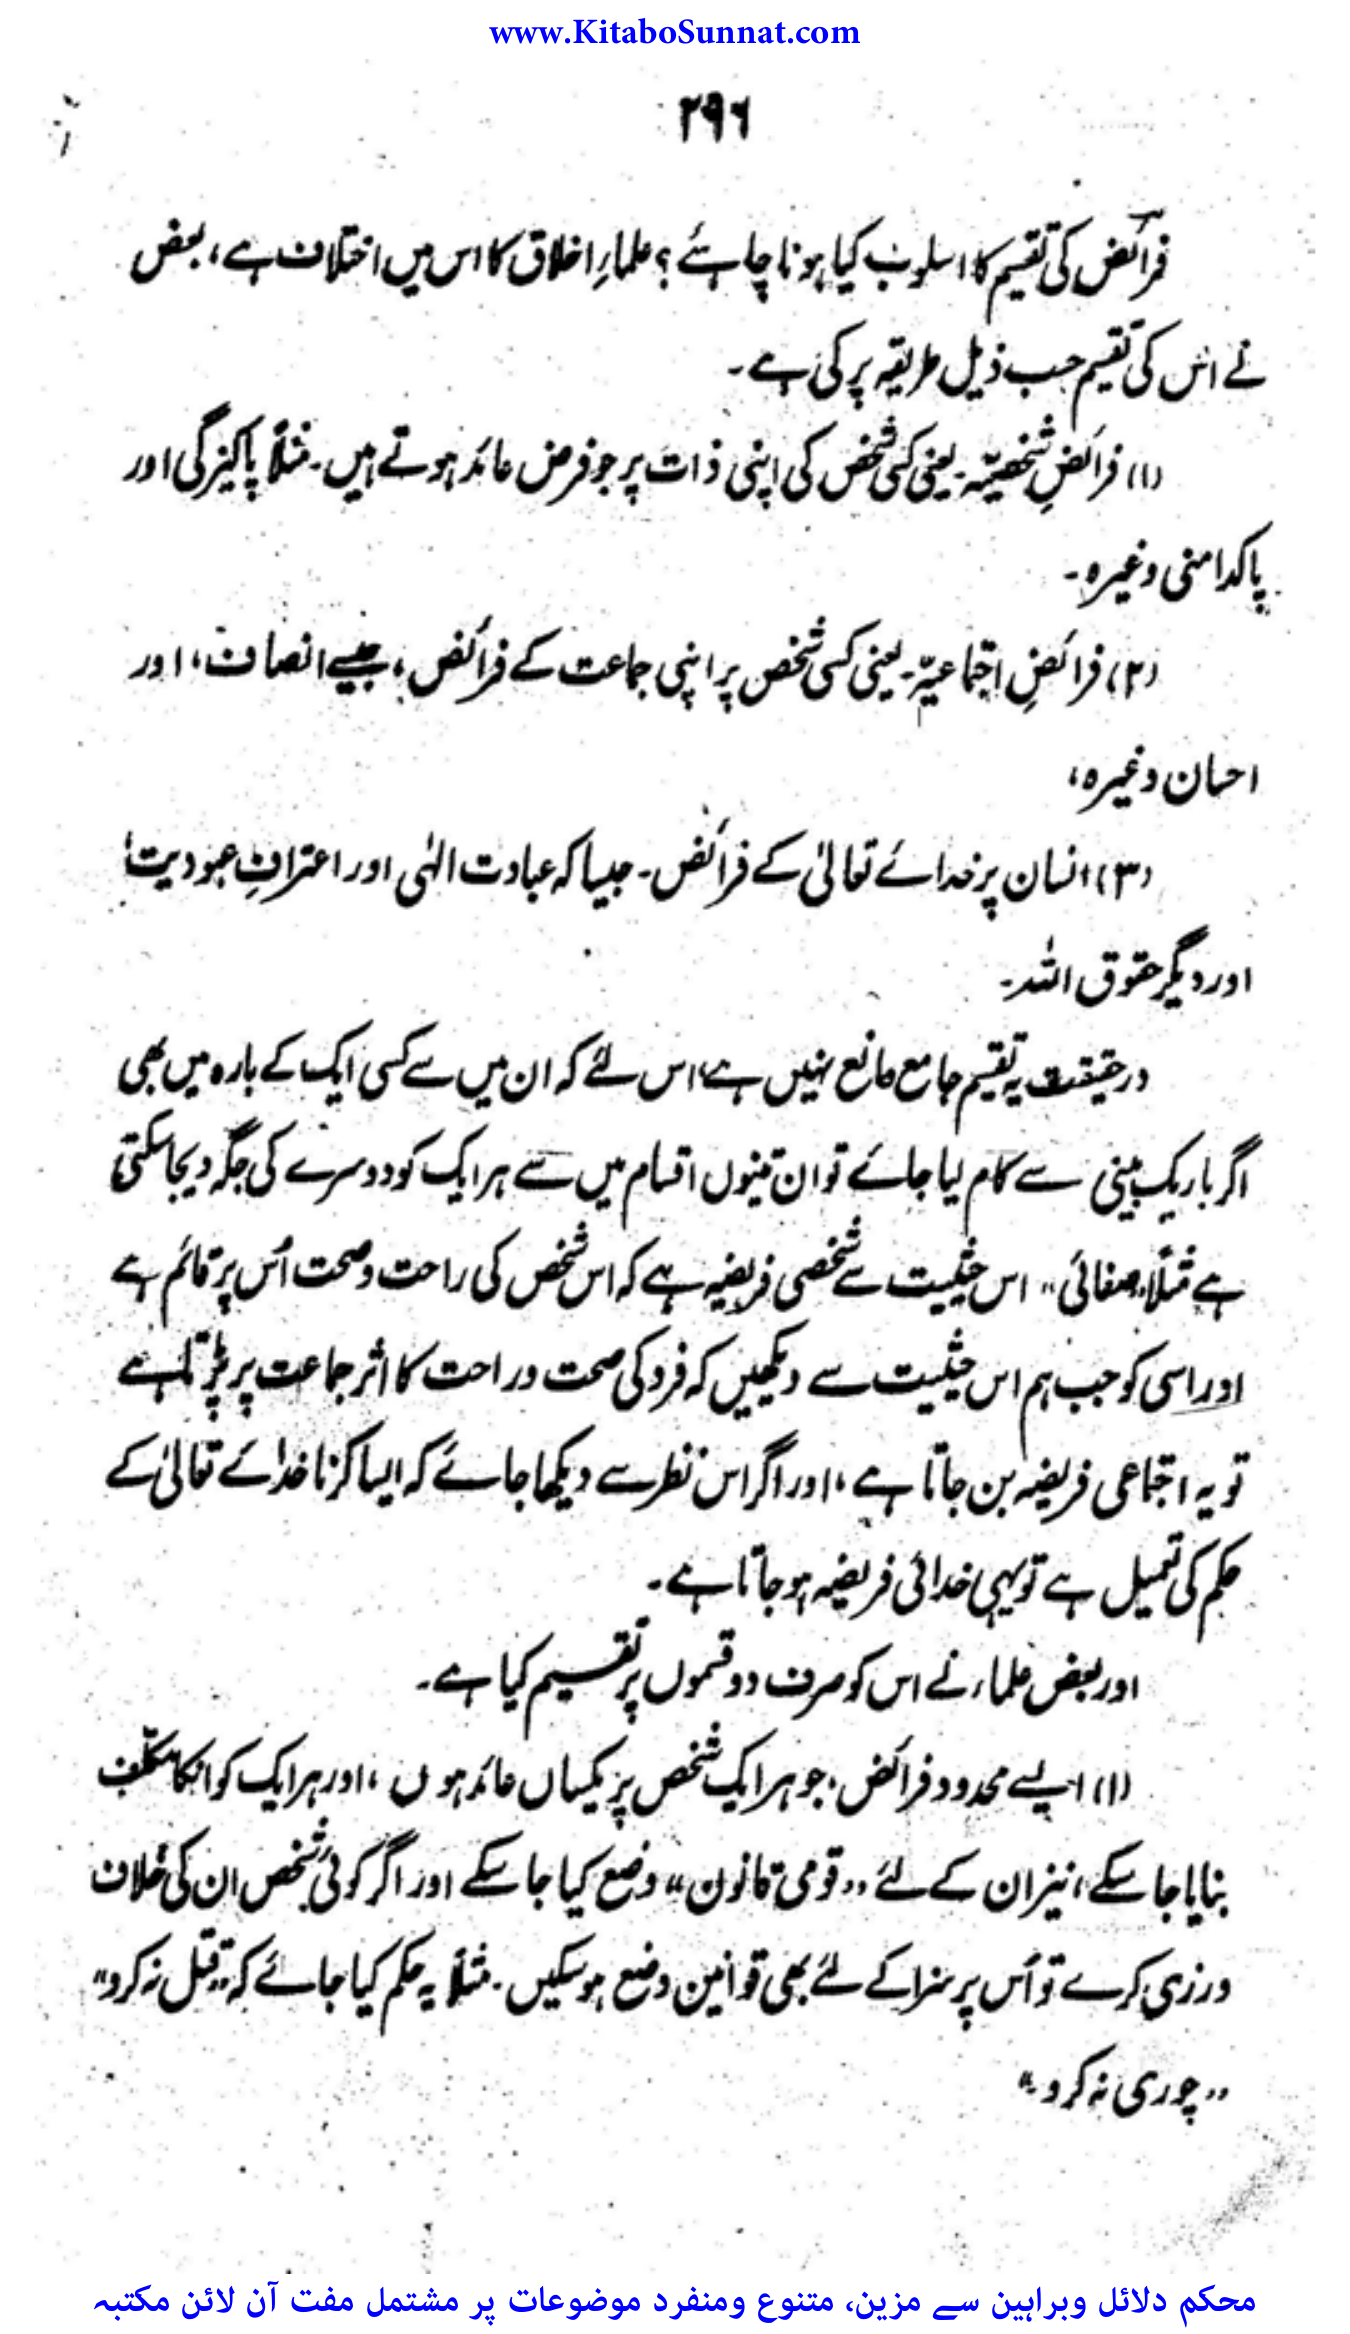 www.KitaboSunnat.com
۲۹۶
فرائض کی تقسیم کا اسلوب کیا ہونا چاہئے؟ علماءِ اخلاق کا اس میں اختلاف ہے، بعض
نے اس کی تقسیم حسب ذیل طریقہ پر کی ہے۔
(۱) فرائضِ شخصیّہ۔ یعنی کسی شخص کی اپنی ذات پر جو فرض عائد ہوتے ہیں۔ مثلاً پاکیزگی اور
پاکدامنی وغیرہ۔
(۲) فرائضِ اجتماعیّہ۔ یعنی کسی شخص پر اپنی جماعت کے فرائض، جیسے انصاف، اور
احسان وغیرہ،
(۳) انسان پر خدائے تعالیٰ کے فرائض۔ جیسا کہ عبادت الٰہی اور اعترافِ عبودیت،
اور دیگر حقوق اللہ۔
درحقیقت یہ تقسیم جامع مانع نہیں ہے، اس لئے کہ ان میں سے کسی ایک کے بارہ میں بھی
اگر باریک بینی سے کام لیا جائے تو ان تینوں اقسام میں سے ہر ایک کو دوسرے کی جگہ دیجاسکتی
ہے مثلاً "صفائی" اس حیثیت سے شخصی فریضہ ہے کہ اس شخص کی راحت و صحت اُس پر قائم ہے
اور اسی کو جب ہم اس حیثیت سے دیکھیں کہ فرد کی صحت و راحت کا اثر جماعت پر پڑتا ہے
تو یہ اجتماعی فریضہ بن جاتا ہے، اور اگر اس نظر سے دیکھا جائے کہ ایسا کرنا خدائے تعالیٰ کے
حکم کی تعمیل ہے تو یہی خدائی فریضہ ہو جاتا ہے۔
اور بعض علماء نے اس کو صرف دو قسموں پر تقسیم کیا ہے۔
(۱) ایسے محدود فرائض، جو ہر ایک شخص پر یکساں عائد ہوں، اور ہر ایک کو انکا مکلّف
بنایا جاسکے، نیز ان کے لئے "قومی قانون" وضع کیا جاسکے اور اگر کوئی شخص ان کی خلاف
ورزی کرے تو اُس پر سزا کے لئے بھی قوانین وضع ہوسکیں۔ مثلاً یہ حکم کیا جائے کہ "قتل نہ کرو"
"چوری نہ کرو"
محکم دلائل وبراہین سے مزین، متنوع ومنفرد موضوعات پر مشتمل مفت آن لائن مکتبہ